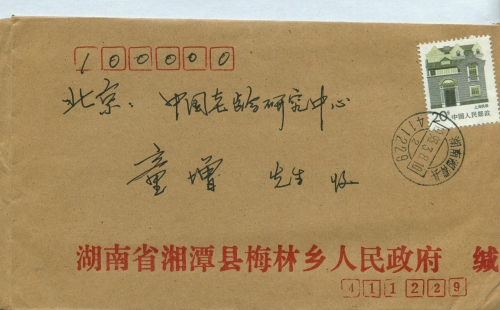 100000
上海民居
20分 中国人民邮政
北京：中国老龄研究中心
童增 先生 收
湖南省湘潭县梅林乡人民政府 缄
411229